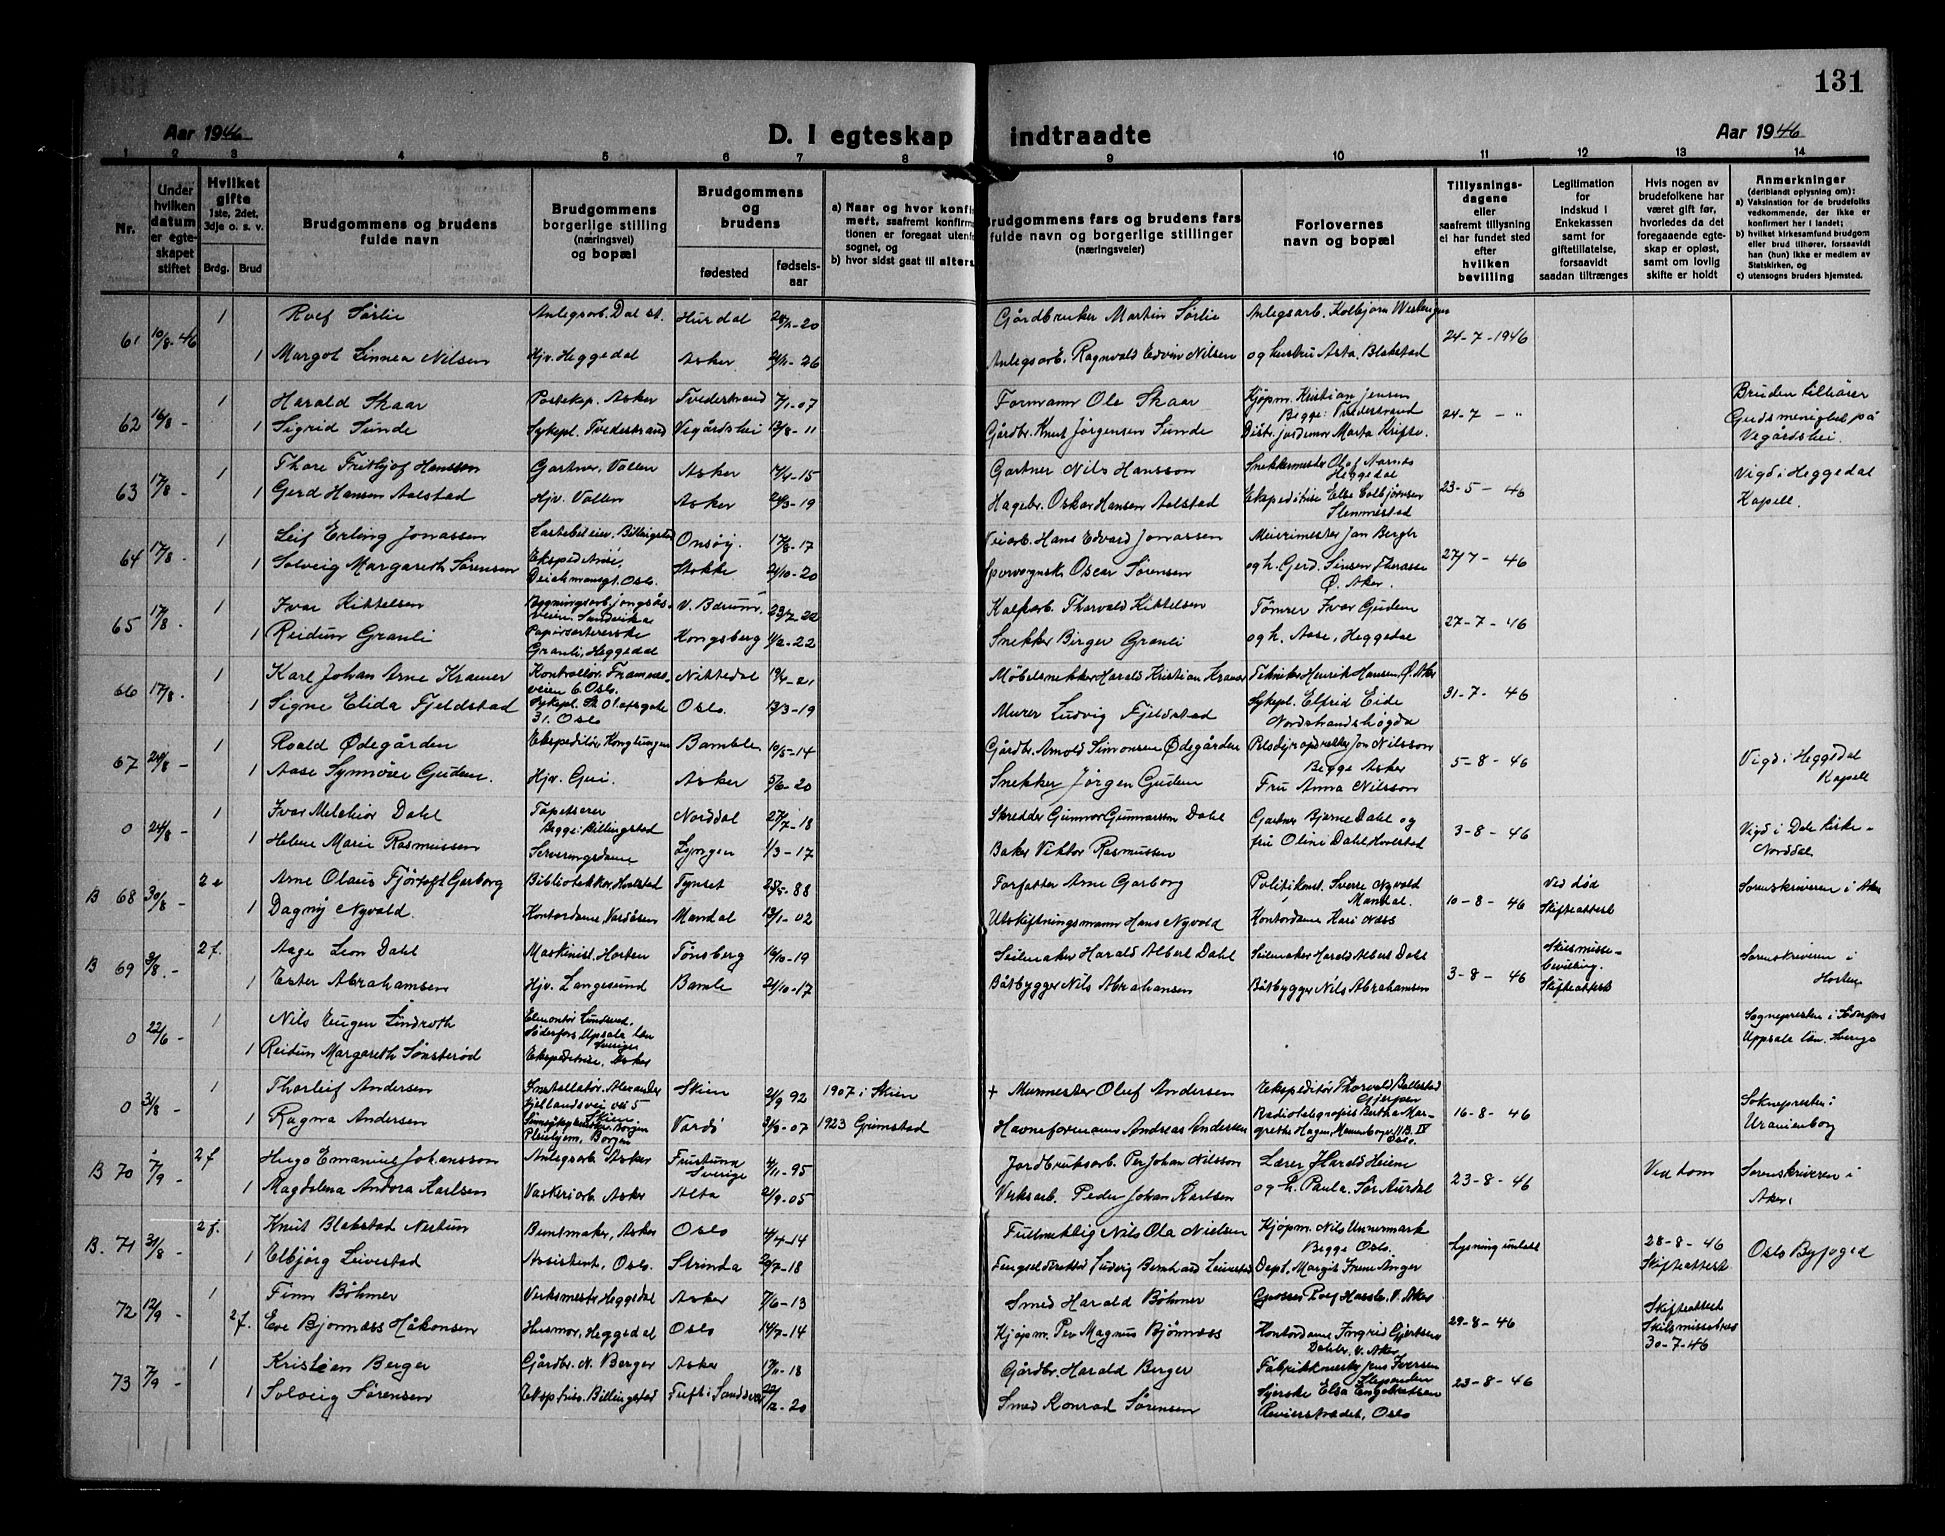 131
Aar 1946
D. I egteskap indtraadte
Aar 1946
1 2 3 4 5 6 7 8 9 10 11 12 13 14
Nr.
Under hvilken datum er egteskapet stiftet
Hvilket gifte 1ste, 2det, 3dje o. s. v.
Brdg. Brud
Brudgommens og brudens fulde navn
Brudgommens borgerlige stilling (næringsvei) og bopæl
Brudgommens og brudens
fødested
fødselsaar
a) Naar og hvor konfir
meft, saafremt konfirm
tionen er foregaat utenfo
sognet, og
b) hvor sidst gaat til alters
Brudgommens fars og brudens fars fulde navn og borgerlige stillinger (næringsveier)
Forlovernes navn og bopæl
Tillysningsdagene eller saafremt tillysning ei har fundet sted efter hvilken bevilling
Legitimation for Indskud i Enkekassen samt for giftetillatelse, forsaavidt saadan tiltrænges
Hvis nogen av brudefolkene har været gift før, hvorledes da det foregaaende egteskap er opløst, samt om lovlig skifte er holdt
Anmerkninger (deriblandt oplysning om): a) Vaksination for de brudefolks vedkommende, der ikke er konfirmert her i landet; b) hvilket kirkesamfund brudgom eller brud tilhører, forsaavidt han (hun) ikke er medlem av Statskirken, og c) utensogns bruders hjemsted.
61 10/8-46 1 Rolf Sørlie Anlegsarb. Dal st. Hurdal -20 Gårdbruker Martin Sørlie Anlegsarb. Kolbjørn 24-7-1946
1 Margot Linnea Nilsen Hjv. Heggedal Asker -26 Anlegsarb. Ragnvald Edvin Nilsen og hustru Asta, Blakstad
62 16/8 - 1 Harald Skaar Posteksp. Asker Tvedestrand 7/1-07 Formann Ole Skaar Kjøpm. Kristian Jensen Begge: Tvedestrand 24-7 - " Bruden tilhører
1 Sigrid Sunde Sykepl. Tvedestrand Vegårdshei 13/8-11 Gårdbr. Knut Jørgensen Sunde Distr. jordmor Marta Guds menighet på Vegårdshei.
63 17/8 - 1 Thore Fritjof Hansson Gartner, Vollen Asker 17/4-15 Gartner Nils Hansson Snekkermester Olaf Heggedal 23-5-46 Vigd i Heggedal
1 Gerd Hansen Aalstad Hjv. Vollen Asker 24/3-19 Hagebr. Oskar Hansen Aalstad Ekspeditrise Else Colbjørnsen Slemmestad Kapell.
64 17/8 - 1 Leif Erling Jonassen Lastebileier, Billingstad Onsøy. 17/8-17 Veiarb. Hans Edvard Jonassen Murmester Jan Bergh 27/7-46
1 Solveig Margareth Sørensen Deichmansgt. Oslo. Stokke 21/10-20 Sporvognsk. Oscar Sørensen og h. Gerd. Sinsen Terasse Ø. Aker.
65 17/8 - 1 Ivar Kittelsen Sandvika V. Bærum. 23/7-22 Kalkarb. Thorvald Kittelsen Tømrer Ivar Gudem 27-7-46
1 Reidun Granli Granli, Heggedal Kongsberg 4/2-22 Snekker Birger Granli og h. Aase, Heggedal
66 17/8 - 1 Karl Johan Arne Kramer Kontrollør. Framnesveien 6. Oslo. Nittedal 19/4-21 Møbelsnekker Harald Kristian Kramer Tekniker Henrik Hansen, Ø. Aker 31-7-46
1 Signe Elida Fjeldstad Sykepl. St. Olafsgate 31. Oslo Oslo. 13/3-19 Murer Ludvig Fjeldstad Sykepl. Elfrid Eide Nordstrandshøgda
67 24/8 - 1 Roald Ødegården Ekspeditør, Konglungen Bamble 10/5-14 Gårdbr. Arnold Simonsen Ødegården Pelsdyropdretter Jon Nilsson Begge Asker 5-8-46 Vigd i Heggedal
1 Aase Synnøve Gudem. Hjv. Gui. Asker 5/6-20 Snekker Jørgen Gudem Fru Anna Nilsson Kapell
0 24/8 - 1 Ivar Melchior Dahl Tapetserer Begge: Billingstad Norddal 27/7-18 Skredder Gunnar Gunnarsen Dahl Gartner Bjarne Dahl og 3-8-46 Vigd i Dale kirke -
1 Helene Marie Rasmussen Serveringsdame Lyngen 1/3-17 Baker Viktor Rasmussen fru Oline Dahl Hvalstad Norddal
B 68 30/8 - 2 e Arne Olaus Fjørtoft Garborg Bibliotekar, Hvalstad Tynset 25/5-88 Forfatter Arne Garborg Politikonst. Sverre Nyvold Mandal. 10-8-46 Ved død Skifteattest Sorenskriveren i Aker
1 Dagny Nyvold. Kontordame, Vardåsen Mandal 13/1-02 Utskiftningsmann Hans Nyvold Kontordame Kari Næss
B 69 3/8 - 2 f. Aage Leon Dahl Maskinist, Horten Tønsberg 16/10-19 Seilmaker Harald Albert Dahl Seilmaker Harald Albert Dahl 3-8-46 Skilsmissebevilling. Skifteattest Sorenskriveren i
1 Ester Abrahamsen Hjv. Langesund Bamle 21/10-17 Båtbygger Nils Abrahamsen Båtbygger Nils Abrahamsen Horten
0 22/6 - 1 Nils Eugen Lindroth Söderfors, Upsala län Sverige Sognepresten i Söderfors
1 Reidun Margareth Sønsterød Ekspeditrise, Asker Uppsala län. Sverige
0 31/8 - 1 Thorleif Andersen Installatør. Alexander Kjellandsvei 5 Skien Skien 21/9 92 1907 i Skien + Murmester Oluf Andersen Ekspeditør Thorvald Ballestad Gjerpen 16-8-46 Sokneprest i
1 Ragna Andersen Pleiehjem. Borgen Vardø -07 1923 Grimstad Havneformann Andreas Andersen Radiotelegrafist Bertha Margrethe Hagen, Oslo. Uranienborg
B 70 7/9 - 2 f Hugo Emanuel Johansson Anlegsarb. Asker Sverige 4/11-95 Jordbruksarb. Per Johan Nilsson Lærer Harald Heiene 23-8-46 Ved dom Sorenskriveren i
1 Magdalena Andora Karlsen Vaskeriarb. Asker Alta 2/9-05 Verksarb. Peder Johan Karlsen og h. Paula. Sør Aurdal Aker.
B. 71 31/8 - 2 f. Knut Blakstad Nertun Buntmaker, Asker Oslo 4/4-14 Fullmektig Nils Ola Nielsen Kjøpm. Nils Unnermark Begge Oslo. Lysning unlatt 28-8-46 Skifteattest Oslo Byfoged
1 Elbjørg Leivestad Assistent, Oslo. Strinda 20/7-18 Fengseldirektør Ludvig Bernhard Leivestad Dept. Margit Irene Anger
72 12/9 - 1 Finn Bøhmer Verksmester Heggedal Asker 7/6-13 Smed Harald Bøhmer Grosser Rolf Hassle. V. Aker 29-8-46 Skifteattest
2 f. Eve Bjørnæss Håkonsen Husmor, Heggedal Oslo 14/7-14 Kjøpm. Per Magnus Bjørnæss Kontordame Ingrid Gjertsen V. Aker Skilsmisseattest 30-7-46
73 7/9 - 1 Kristian Berger Gårdbr. N. Berger Asker 17/11-18 Gårdbr. Harald Berger Fabrikkmester Jens Iversen Slependen 23-8-46
1 Solveig Sørensen Eksptrise. Billingstad Tuft i Sandsvær 22/12-20 Smed Konrad Sørensen Syerske Elsa Engebretsen Revierstredet, Oslo